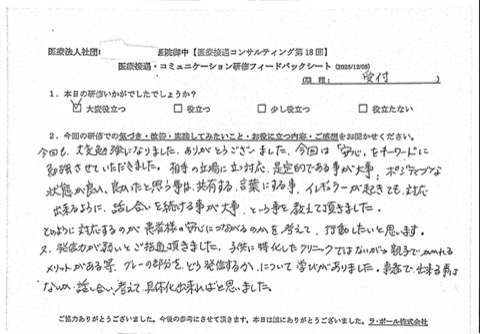 医療法人社団 医院御中【医療接遇コンサルティング第18回】
医療接遇・コミュニケーション研修フィードバックシート (2025/12/08)
(職種: 受付 )
1．本日の研修いかがでしたでしょうか？
☑ 大変役立つ □ 役立つ □ 少し役立つ □ 役立たない
2．今回の研修での気づき・改善・実践してみたいこと・お役に立つ内容・ご感想をお聞かせください。
今回も、大変勉強になりました。ありがとうございました。今回は「安心」をキーワードに
勉強させていただきました。相手の立場に立つ対応、肯定的である事が大事、ポジティブな
状態が良い、良かったと思う事は、共有する、言葉にする事、イレギュラーが起きても、対応
出来るように、話し合いを続ける事が大事、という事を教えて頂きました。
どのように対応するのが患者様の安心につながるのかを考えて、行動したいと思います。
又、発信力が弱いとご指摘頂きました。子供に特化したクリニックではないが、親子でかかれる
メリットがある等、グレーの部分をどう発信するか、について学びがありました。事務で出来る事は
ないか、話し合い、考えて、具体化出来ればと思いました。
ご協力ありがとうございました。今後の参考にさせて頂きます。本日は誠にありがとうございました。ラ・ポール株式会社